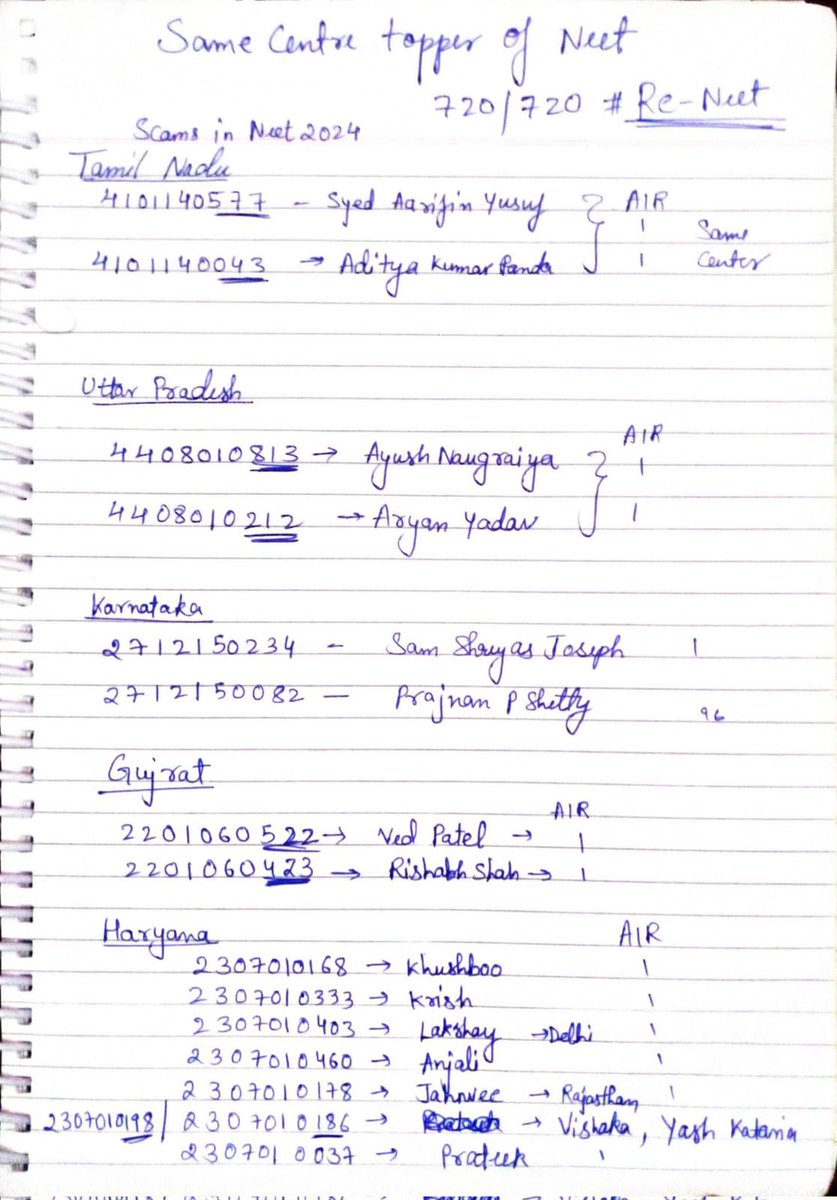 Same Centre topper of Neet
720/720 # Re-Neet
Scams in Neet 2024
Tamil Nadu
4101140577 - Syed Aarifin Yusuf AIR 1
4101140043 → Aditya Kumar Panda 1 Same Center
Uttar Pradesh
AIR
4408010813 → Ayush Naugraiya 1
4408010212 → Aryan Yadav 1
Karnataka
2712150234 - Sam Shreyas Joseph 1
2712150082 - Prajnan P Shetty 96
Gujrat
AIR
2201060522 → Ved Patel → 1
2201060423 → Rishabh Shah → 1
Haryana AIR
2307010168 → Khushboo 1
2307010333 → Krish 1
2307010403 → Lakshay → Delhi 1
2307010460 → Anjali 1
2307010178 → Jahnvee → Rajastham 1
2307010198 / 2307010186 → → Vishaka, Yash Kataria
2307010037 → Prateek 1